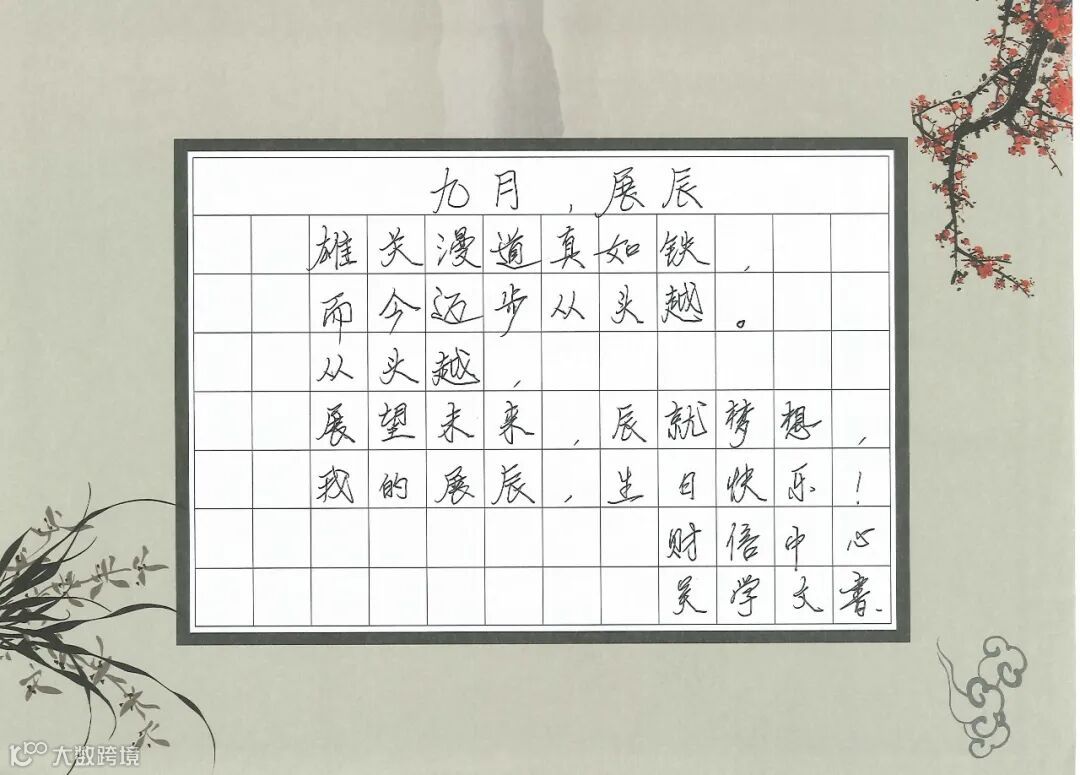 九月，展辰
雄关漫道真如铁，
而今迈步从头越。
从头越，
展望未来，辰就梦想，
我的展辰，生日快乐！
财倍中心
吴学文书.
大数跨境